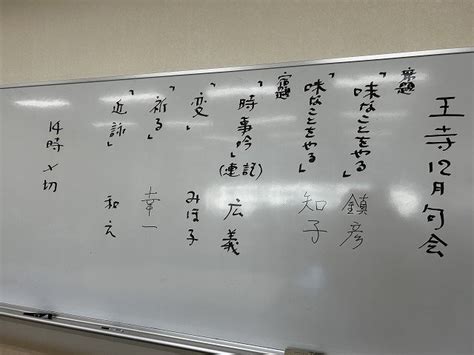 王寺12月句会
席題
「味なことをやる」 鎮彦
「味なことをやる」 知子
宿題
「時事吟」(連記) 広義
「変」 みほ子
「祈る」 幸一
「近詠」 和え
14時〆切